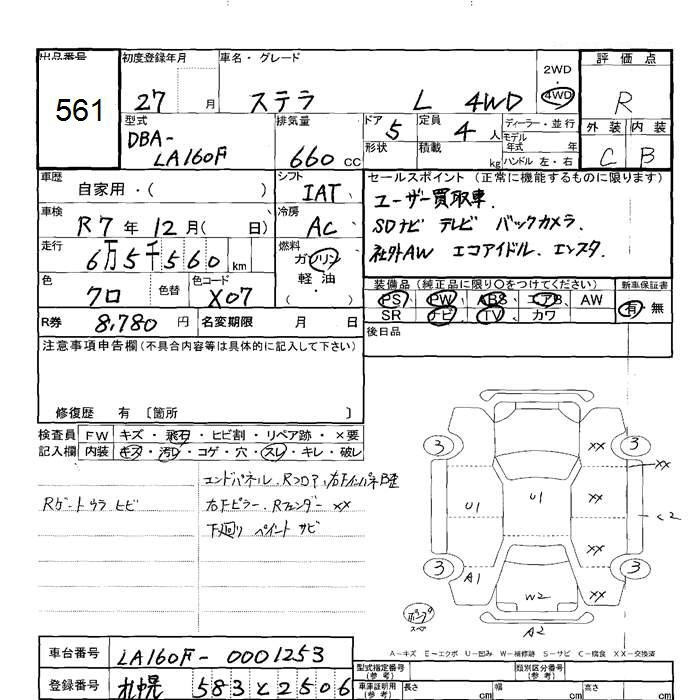 出品番号 初度登録年月 車名・グレード 2WD・4WD 評価点
561 27 月 ステラ L 4WD R
型式 DBA-LA160F 排気量 660 cc ドア 5 定員 4 人 ディーラー・並行 外装 内装
形状 積載 kg モデル年式 年 ハンドル 左・右 C B
車歴 自家用・( ) シフト IAT セールスポイント (正常に機能するものに限ります)
ユーザー買取車、
車検 R7 年 12 月 ( 日) 冷房 AC
SDナビ テレビ バックカメラ
走行 6万5千560 km 燃料 ガソリン・軽油・
社外AW エコアイドル、エンスタ、
色 クロ 色替 色コード X07
装備品 (純正品に限り○をつけてください) 新車保証書
PS PW ABS エアB AW 有・無
SR ナビ TV カワ
R券 8,780 円 名変期限 月 日 後日品
注意事項申告欄 (不具合内容等は具体的に記入して下さい)
修復歴 有 〔箇所 〕
検査員 FW キズ・飛石・ヒビ割・リペア跡・×要
記入欄 内装 キズ・汚れ・コゲ・穴・スレ・キレ・破レ
エンドパネル、Rフロア、右Fインパネ
Rゲートウラ ヒビ 右Fピラー、Rフェンダー XX
下廻り ペイント サビ
3 XX 3
XX
U1 U1 XX C2
XX
3 3
A1 W2 XX
スペア
A2
A-キズ E-エクボ U-凹み W-補修跡 S-サビ C-腐食 XX-交換済
車台番号 LA160F-0001253 型式指定番号(参考) 類別区分番号(参考)
登録番号 札幌 583 と 2506 車庫証明用(参考) 長さ cm 幅 cm 高さ cm